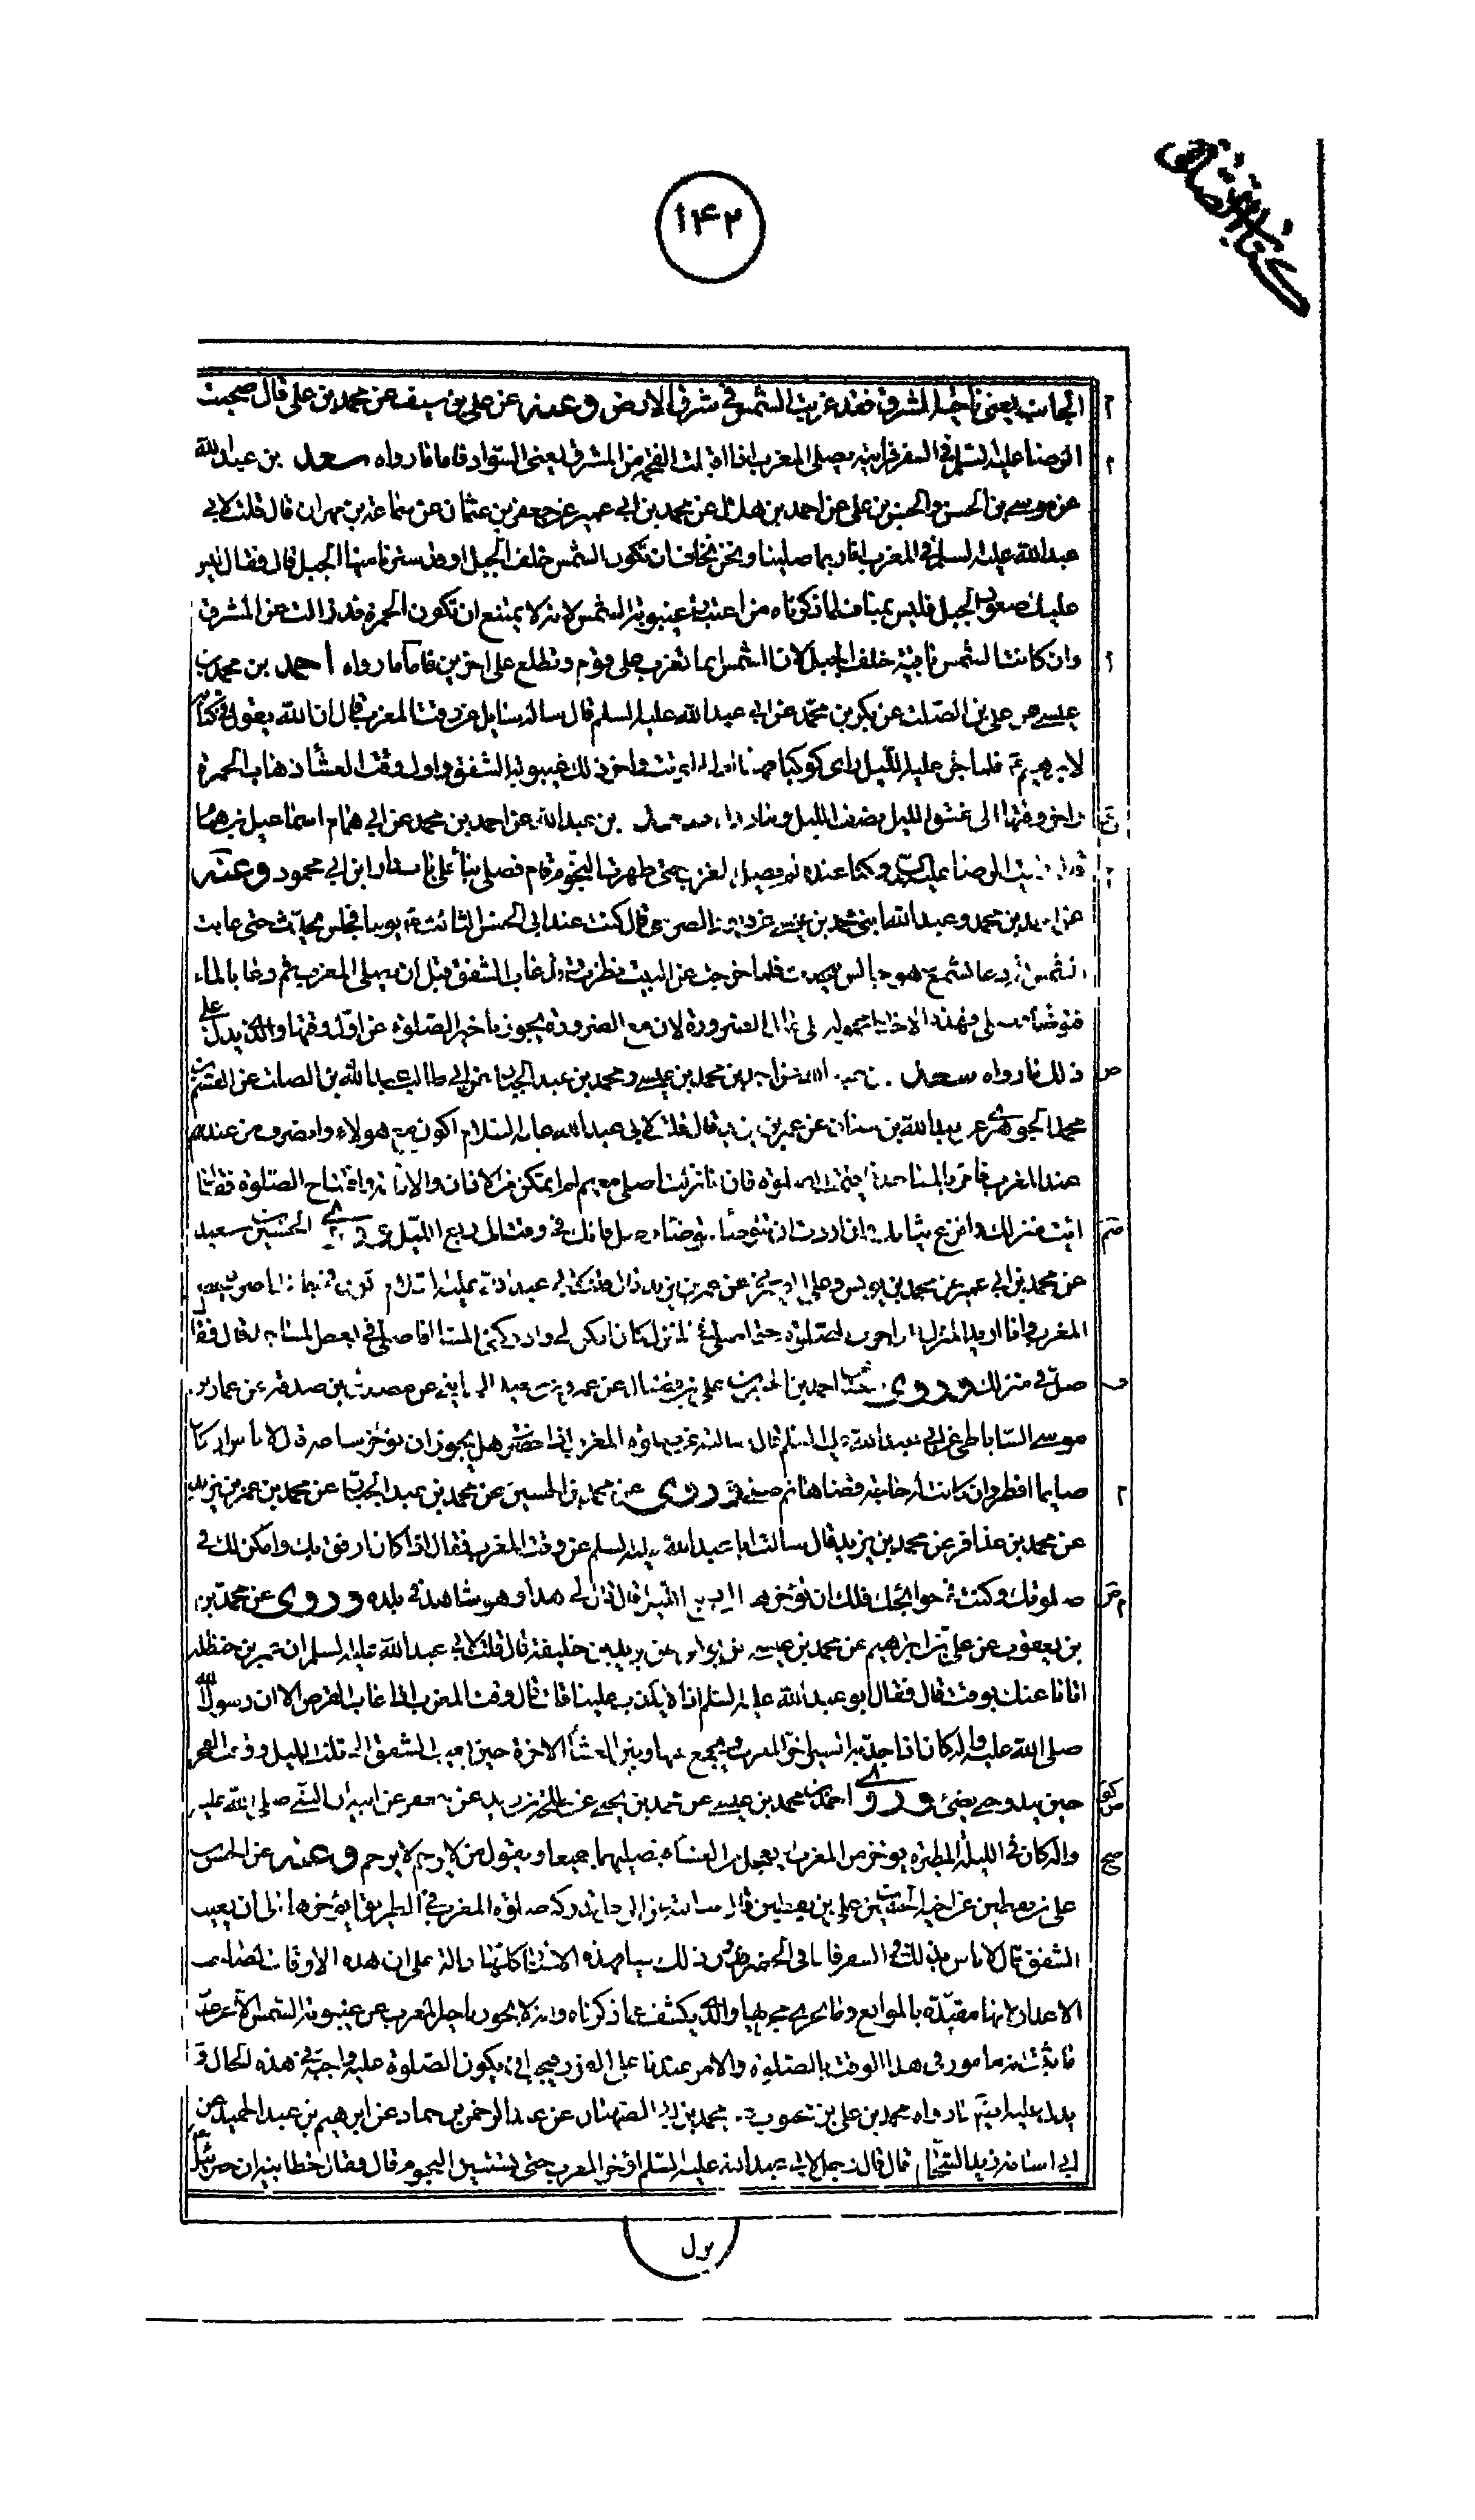 كتاب الصلوة
١٤٢
الجانب يعنى ناحية المشرق فقد غربت الشمس فى شرق الارض وعنه عن على بن سيف عن محمد بن على قال صحبت
الرضا عليه السلم فى السفر فرايته يصلى المغرب اذا اقبلت الفحمة من المشرق يعنى السواد فاما ما رواه سعد بن عبد الله
عن موسى بن الحسن والحسن بن على عن احمد بن هلال عن محمد بن ابى عمير عن جعفر بن عثمان عن سماعة بن مهران قال قلت لابى
عبد الله عليه السلم فى المغرب انا ربما صلينا ونحن نخاف ان تكون الشمس خلف الجبل او قد سترنا منها الجبل قال فقال ليس
عليك صعود الجبل فليس بمناف لما ذكرناه من اعتبار غيبوبة الشمس لانه لا يمتنع ان تكون الحمرة قد زالت عن المشرق
وان كانت الشمس باقية خلف الجبل لان الشمس انما تغرب على قوم وتطلع على اخرين فاما ما رواه احمد بن محمد بن
عيسى عن على بن الصلت عن بكر بن محمد عن ابى عبد الله عليه السلم قال ساله سايل عن وقت المغرب قال ان الله يقول فى كتابه
لابرهيم فلما جن عليه الليل راى كوكبا فهذا اول الوقت واخر ذلك غيبوبة الشفق واول وقت العشاء ذهاب الحمرة
واخر وقتها الى غسق الليل نصف الليل وما رواه سعد بن عبد الله عن احمد بن محمد عن ابى همام اسماعيل بن همام
قال رايت الرضا عليه السلم وكنا عنده لم يصل المغرب حتى ظهرت النجوم قام فصلى بنا على باب دار ابن ابى محمود وعنه
عن احمد بن محمد وعبد الله ابنى محمد بن عيسى عن داود الصرمى قال كنت عند ابى الحسن الثالث يوما فجلس يحدث حتى غابت
الشمس ثم دعا بشمع وهو جالس يتحدث فلما خرجت من البيت نظرت وقد غاب الشفق قبل ان يصلى المغرب ثم دعا بالماء
فتوضأ وصلى فهذه الاخبار محمولة على حال الضرورة لان مع الضرورة يجوز تاخير الصلوة عن اول وقتها والذى يدل على
ذلك ما رواه سعد بن عبد الله عن احمد بن محمد بن عيسى ومحمد بن عبد الجبار عن ابى طالب عبد الله بن الصلت عن القسم بن
محمد الجوهرى عن عبد الله بن سنان عن عمر بن يزيد قال قلت لابى عبد الله عليه السلام اكون مع هؤلاء وانصرف من عندهم
عند المغرب فامر بالمساجد فاقيمت الصلوة فان نا نزلت اصلى معهم لم اتمكن من الاذان والاقامة وافتتاح الصلوة فقال
ائت منزلك وانزع ثيابك وان اردت ان تتوضأ فتوضأ وصل فانك فى وقت الى ربع الليل وروى الحسين بن سعيد
عن محمد بن ابى عمير عن محمد بن يونس وعلى الصيرفى عن عمر بن يزيد قال قلت لابى عبد الله عليه السلام
المغرب وانا اريد المنزل فان اخرت الصلوة حتى اصلى فى المنزل كان امكن لى وادركنى المساء افاصلى فى بعض المساجد قال فقال
صل فى منزلك وروى احمد بن الحسن بن على بن فضال عن عمرو بن سعيد المداينى عن مصدق بن صدقة عن عمار بن
موسى الساباطى عن ابى عبد الله عليه السلم قال سالته عن صلوة المغرب اذا حضرت هل يجوز ان تؤخر ساعة قال لا باس ان كان
صايما افطر وان كانت له حاجة قضاها ثم صلى وروى عن محمد بن الحسين عن محمد بن عبد الجبار عن محمد بن عمر بن يزيد
عن محمد بن عذافر عن محمد بن يزيد قال سالت ابا عبد الله عليه السلم عن وقت المغرب فقال اذا كان ارفق بك وامكن لك فى
صلوتك وكنت فى حوائجك فلك ان تؤخرها الى ربع الليل قال قال لى هذا وهو شاهد فى بلده وروى عن محمد بن
بن يعقوب عن على بن ابراهيم عن محمد بن عيسى عن يونس عن يزيد بن خليفة قال قلت لابى عبد الله عليه السلم ان عمر بن حنظلة
اتانا عنك بوقت قال فقال ابو عبد الله عليه السلم اذا لا يكذب علينا قلت قال وقت المغرب اذا غاب القرص الا ان رسول الله
صلى الله عليه واله كان اذا جد به السير اخر المغرب ويجمع بينها وبين العشاء الاخرة حين يغيب الشفق الى ثلث الليل ووقت الفجر
حين يبدو حتى يضئ وروى احمد بن محمد بن عيسى عن محمد بن يحيى عن طلحة بن زيد عن جعفر عن ابيه ان النبى صلى الله عليه
واله كان فى الليلة المطيرة يؤخر من المغرب ويعجل من العشاء فيصليهما جميعا ويقول من لا يرحم لا يرحم وعنه عن الحسن بن
على بن يقطين عن اخيه الحسين عن على بن يقطين قال سالته عن الرجل تدركه صلوة المغرب فى الطريق ايؤخرها الى ان يغيب
الشفق قال لا باس بذلك فى السفر فاما فى الحضر فدون ذلك شيئا فهذه الاخبار كلها دالة على ان هذه الاوقات لصاحب
الاعذار لانها مقيدة بالموانع وما يجرى مجراها والذى يكشف عما ذكرناه وانه لا يجوز تاخير المغرب عن غيبوبة الشمس الا عن عذر
ما ثبت انه مامور فى هذا الوقت بالصلوة والامر عندنا على الفور فيجب ان يكون الصلوة عليه واجبة فى هذه الحال و
يدل عليه ايضا ما رواه محمد بن على بن محبوب عن محمد بن ابى الصهبان عن عبد الرحمن بن حماد عن ابرهيم بن عبد الحميد عن
ابى اسامة زيد الشحام قال قال رجل لابى عبد الله عليه السلم اؤخر المغرب حتى تستبين النجوم قال فقال خطابية ان جبرئيل
نزل